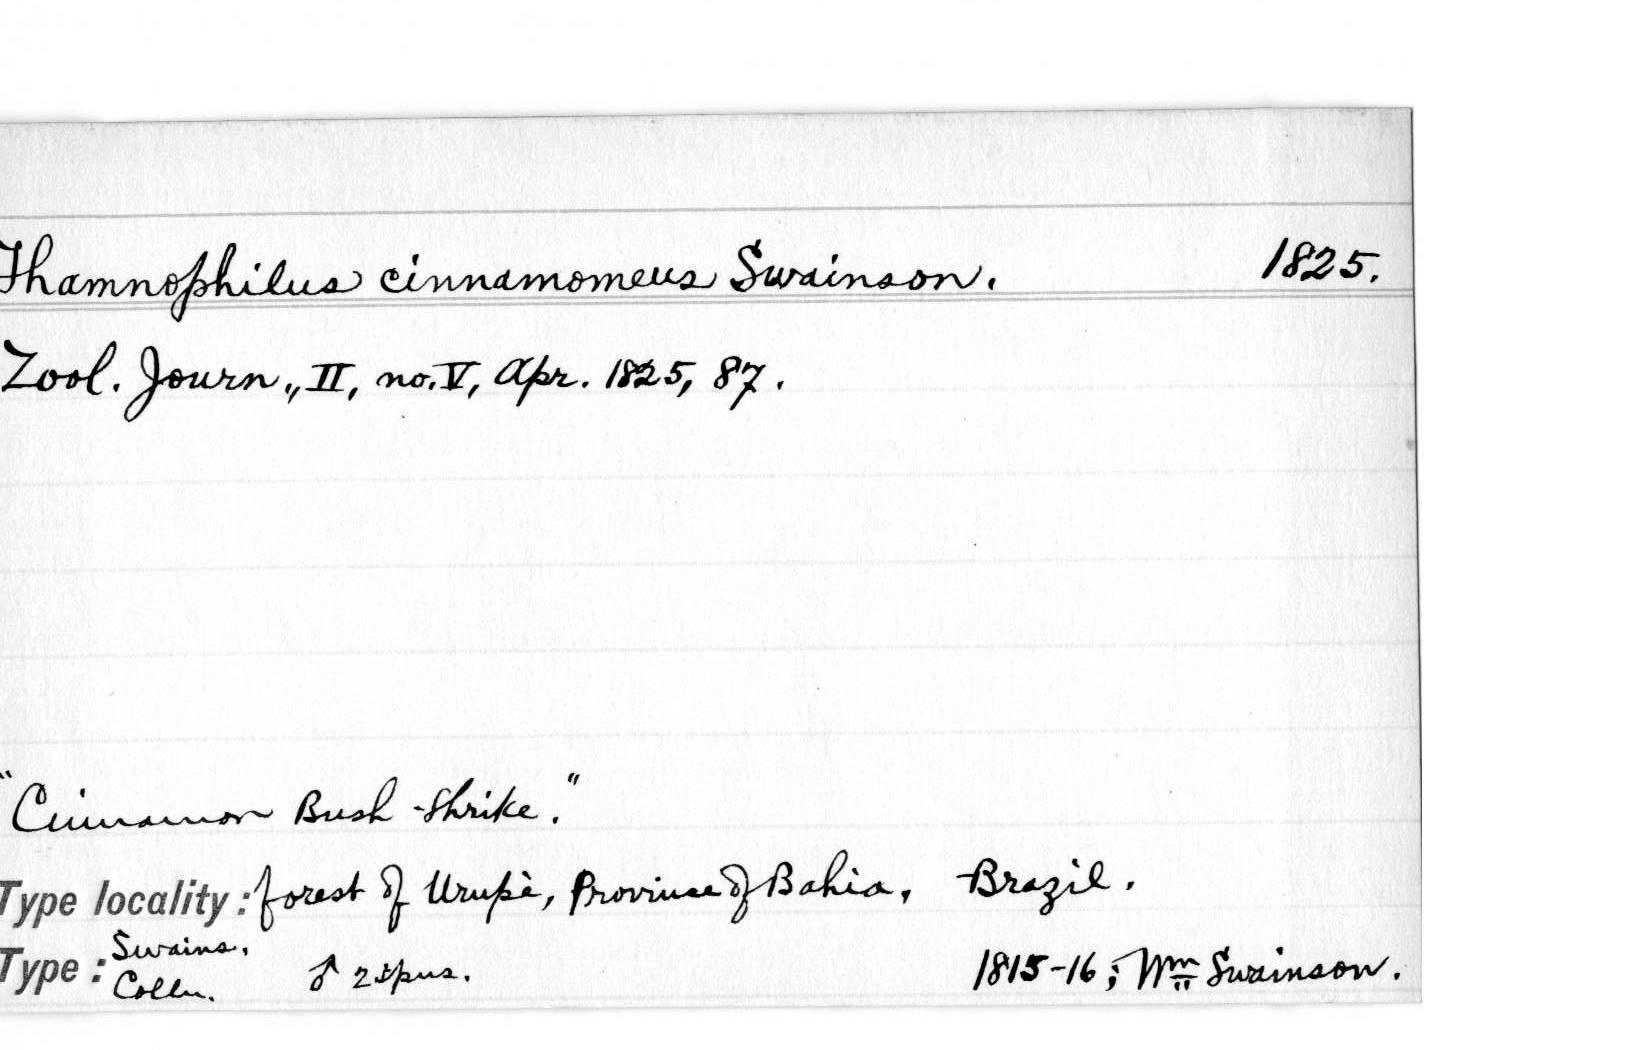 Thamnophilus cinnamomeus Swainson. 1825.
Zool. Journ., II, no. V, Apr. 1825, 87.
"Cinnamon Bush-Shrike."
Type locality: forest of Urupè, Province of Bahia, Brazil.
Type: Swains. Colln. ♂ 2 spns. 1815-16; Wm Swainson.